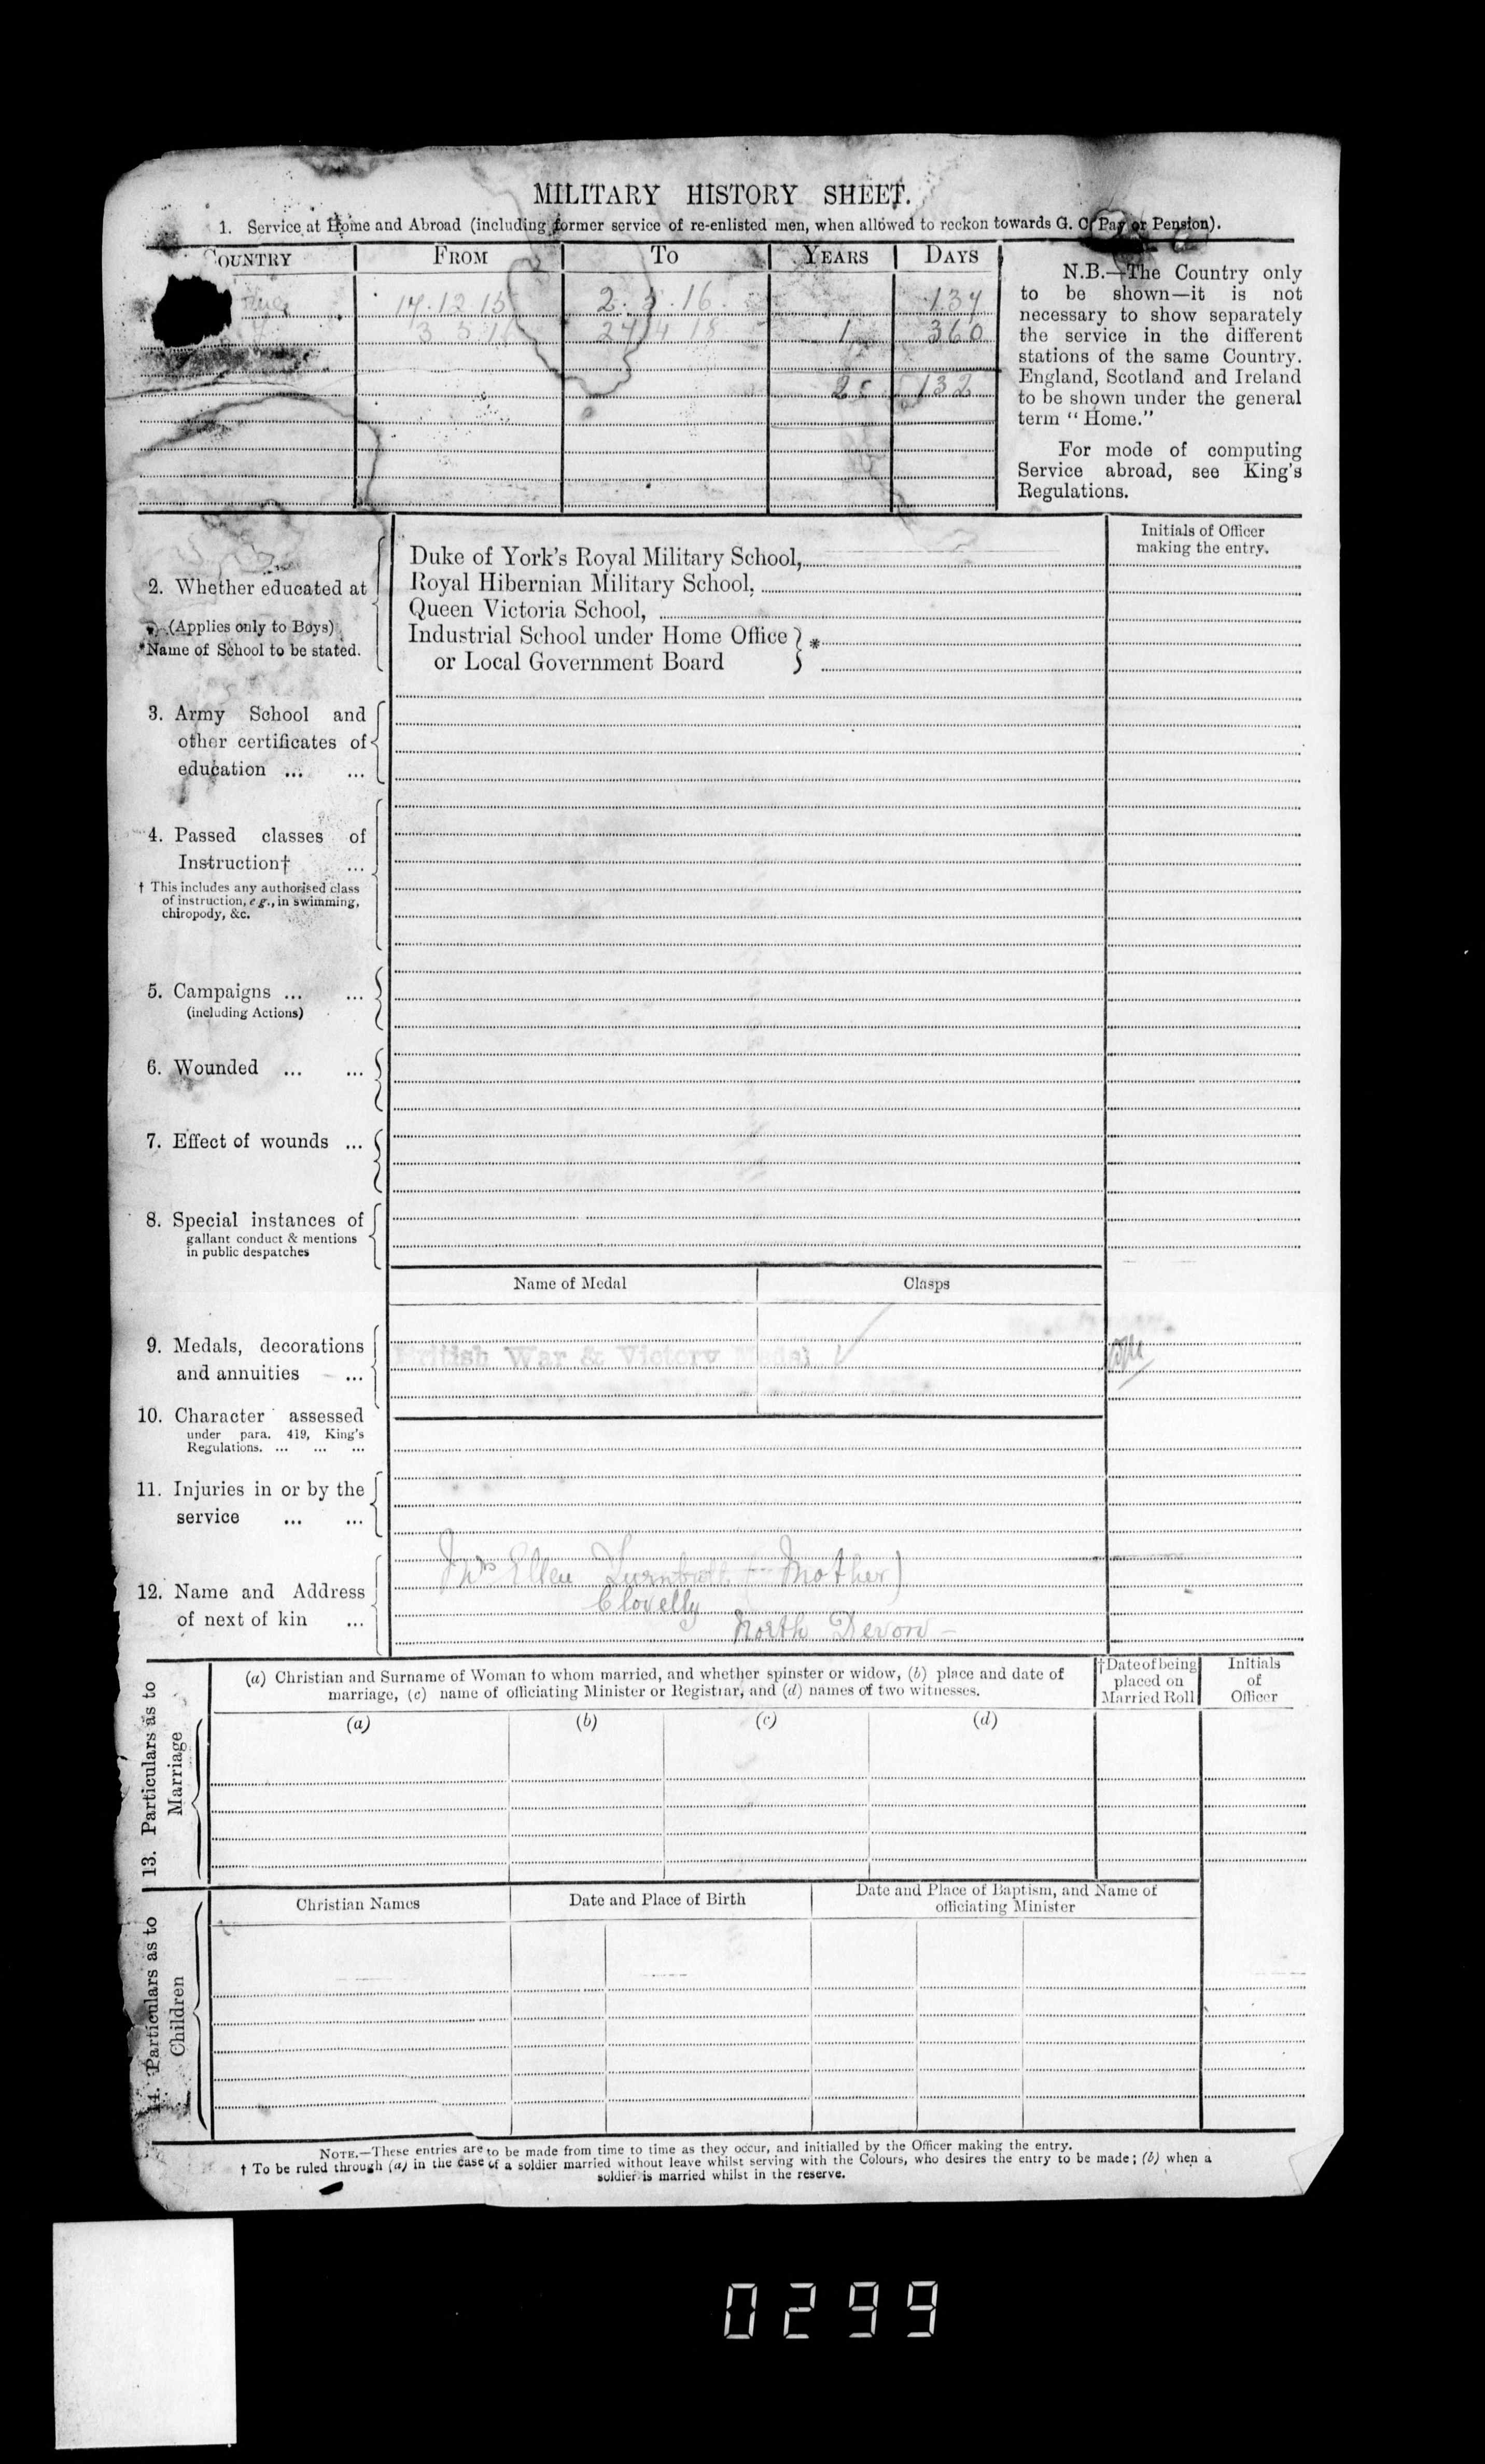 MILITARY HISTORY SHEET.
1. Service at Home and Abroad (including former service of re-enlisted men, when allowed to reckon towards G. C. Pay or Pension).
COUNTRY FROM TO YEARS DAYS
2. 5 .16. 137
1 360
2 132
N.B.—The Country only
to be shown—it is not
necessary to show separately
the service in the different
stations of the same Country.
England, Scotland and Ireland
to be shown under the general
term "Home."
For mode of computing
Service abroad, see King's
Regulations.
Initials of Officer
making the entry.
2. Whether educated at
(Applies only to Boys)
*Name of School to be stated.
Duke of York's Royal Military School,
Royal Hibernian Military School,
Queen Victoria School,
Industrial School under Home Office } *
or Local Government Board
3. Army School and
other certificates of
education ... ...
4. Passed classes of
Instruction† ...
† This includes any authorised class
of instruction, e g., in swimming,
chiropody, &c.
5. Campaigns ... ...
(including Actions)
6. Wounded ... ...
7. Effect of wounds ...
8. Special instances of
gallant conduct & mentions
in public despatches
Name of Medal Clasps
9. Medals, decorations
and annuities ...
British War & Victory Medal
10. Character assessed
under para. 419, King's
Regulations. ... ... ...
11. Injuries in or by the
service ... ...
12. Name and Address
of next of kin ...
Mrs Ellen Turnbull (Mother)
Clovelly
North Devon -
13. Particulars as to
Marriage
(a) Christian and Surname of Woman to whom married, and whether spinster or widow, (b) place and date of
marriage, (c) name of officiating Minister or Registrar, and (d) names of two witnesses.
† Date of being
placed on
Married Roll
Initials
of
Officer
(a) (b) (c) (d)
14. Particulars as to
Children
Christian Names Date and Place of Birth
Date and Place of Baptism, and Name of
officiating Minister
NOTE.—These entries are to be made from time to time as they occur, and initialled by the Officer making the entry.
† To be ruled through (a) in the case of a soldier married without leave whilst serving with the Colours, who desires the entry to be made; (b) when a
soldier is married whilst in the reserve.
0299